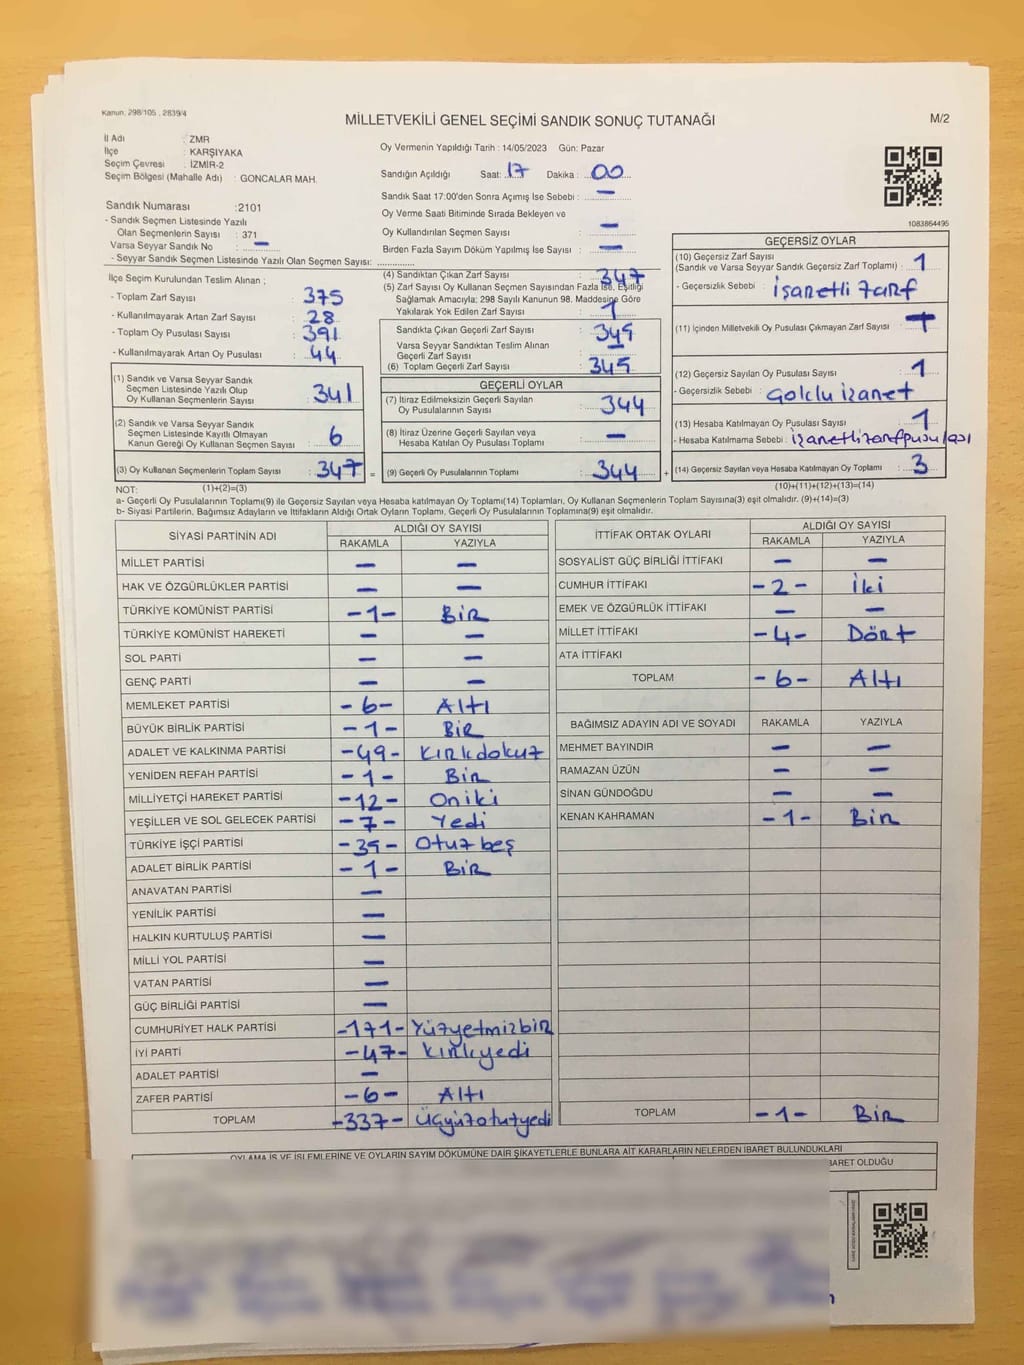 Kanun, 298/105 , 2839/4
MİLLETVEKİLİ GENEL SEÇİMİ SANDIK SONUÇ TUTANAĞI
M/2
İl Adı : ZMR
İlçe : KARŞIYAKA
Seçim Çevresi : İZMİR-2
Seçim Bölgesi (Mahalle Adı) : GONCALAR MAH.
Oy Vermenin Yapıldığı Tarih : 14/05/2023 Gün: Pazar
Sandığın Açıldığı Saat: 17 Dakika : 00
Sandık Saat 17:00'den Sonra Açımış İse Sebebi : —
Oy Verme Saati Bitiminde Sırada Bekleyen ve
Oy Kullandırılan Seçmen Sayısı : —
Birden Fazla Sayım Döküm Yapılmış İse Sayısı : —
Sandık Numarası :2101
- Sandık Seçmen Listesinde Yazılı
Olan Seçmenlerin Sayısı : 371
Varsa Seyyar Sandık No : —
- Seyyar Sandık Seçmen Listesinde Yazılı Olan Seçmen Sayısı:
1083864495
İlçe Seçim Kurulundan Teslim Alınan ;
- Toplam Zarf Sayısı : 375
- Kullanılmayarak Artan Zarf Sayısı : 28
- Toplam Oy Pusulası Sayısı : 391
- Kullanılmayarak Artan Oy Pusulası : 44
(1) Sandık ve Varsa Seyyar Sandık
Seçmen Listesinde Yazılı Olup
Oy Kullanan Seçmenlerin Sayısı : 341
(2) Sandık ve Varsa Seyyar Sandık
Seçmen Listesinde Kayıtlı Olmayan
Kanun Gereği Oy Kullanan Seçmen Sayısı : 6
(3) Oy Kullanan Seçmenlerin Toplam Sayısı : 347 =
(1)+(2)=(3)
(4) Sandıktan Çıkan Zarf Sayısı : 347
(5) Zarf Sayısı Oy Kullanan Seçmen Sayısından Fazla İse, Eşitliği
Sağlamak Amacıyla; 298 Sayılı Kanunun 98. Maddesine Göre
Yakılarak Yok Edilen Zarf Sayısı : 1
Sandıkta Çıkan Geçerli Zarf Sayısı :
Varsa Seyyar Sandıktan Teslim Alınan
Geçerli Zarf Sayısı : —
(6) Toplam Geçerli Zarf Sayısı : 345
GEÇERLİ OYLAR
(7) İtiraz Edilmeksizin Geçerli Sayılan
Oy Pusulalarının Sayısı : 344
(8) İtiraz Üzerine Geçerli Sayılan veya
Hesaba Katılan Oy Pusulası Toplamı : —
(9) Geçerli Oy Pusulalarının Toplamı : 344 +
GEÇERSİZ OYLAR
(10) Geçersiz Zarf Sayısı
(Sandık ve Varsa Seyyar Sandık Geçersiz Zarf Toplamı) : 1
- Geçersizlik Sebebi : işaretli zarf
(11) İçinden Milletvekili Oy Pusulası Çıkmayan Zarf Sayısı :
(12) Geçersiz Sayılan Oy Pusulası Sayısı : 1
- Geçersizlik Sebebi :
(13) Hesaba Katılmayan Oy Pusulası Sayısı : 1
- Hesaba Katılmama Sebebi :
(14) Geçersiz Sayılan veya Hesaba Katılmayan Oy Toplamı : 3
(10)+(11)+(12)+(13)=(14)
NOT:
a- Geçerli Oy Pusulalarının Toplamı(9) ile Geçersiz Sayılan veya Hesaba katılmayan Oy Toplamı(14) Toplamları, Oy Kullanan Seçmenlerin Toplam Sayısına(3) eşit olmalıdır. (9)+(14)=(3)
b- Siyasi Partilerin, Bağımsız Adayların ve İttifakların Aldığı Ortak Oyların Toplamı, Geçerli Oy Pusulalarının Toplamına(9) eşit olmalıdır.
SİYASİ PARTİNİN ADI ALDIĞI OY SAYISI
RAKAMLA YAZIYLA
MİLLET PARTİSİ — —
HAK VE ÖZGÜRLÜKLER PARTİSİ — —
TÜRKİYE KOMÜNİST PARTİSİ -1- Bir
TÜRKİYE KOMÜNİST HAREKETİ — —
SOL PARTİ — —
GENÇ PARTİ — —
MEMLEKET PARTİSİ -6- Altı
BÜYÜK BİRLİK PARTİSİ -1- Bir
ADALET VE KALKINMA PARTİSİ -49- Kırkdokuz
YENİDEN REFAH PARTİSİ -1- Bir
MİLLİYETÇİ HAREKET PARTİSİ -12- Oniki
YEŞİLLER VE SOL GELECEK PARTİSİ -7- Yedi
TÜRKİYE İŞÇİ PARTİSİ -35- Otuzbeş
ADALET BİRLİK PARTİSİ -1- Bir
ANAVATAN PARTİSİ —
YENİLİK PARTİSİ —
HALKIN KURTULUŞ PARTİSİ —
MİLLİ YOL PARTİSİ —
VATAN PARTİSİ —
GÜÇ BİRLİĞİ PARTİSİ —
CUMHURİYET HALK PARTİSİ -171- Yüzyetmizbir
İYİ PARTİ -47- Kırkyedi
ADALET PARTİSİ —
ZAFER PARTİSİ -6- Altı
TOPLAM -337- Üçyüzotuzyedi
İTTİFAK ORTAK OYLARI ALDIĞI OY SAYISI
RAKAMLA YAZIYLA
SOSYALİST GÜÇ BİRLİĞİ İTTİFAKI — —
CUMHUR İTTİFAKI -2- İki
EMEK VE ÖZGÜRLÜK İTTİFAKI — —
MİLLET İTTİFAKI -4- Dört
ATA İTTİFAKI
TOPLAM -6- Altı
BAĞIMSIZ ADAYIN ADI VE SOYADI RAKAMLA YAZIYLA
MEHMET BAYINDIR — —
RAMAZAN ÜZÜN — —
SİNAN GÜNDOĞDU — —
KENAN KAHRAMAN -1- Bir
TOPLAM -1- Bir
OYLAMA İŞ VE İŞLEMLERİNE VE OYLARIN SAYIM DÖKÜMÜNE DAİR ŞİKAYETLERLE BUNLARA AİT KARARLARIN NELERDEN İBARET BULUNDUKLARI
İBARET OLDUĞU